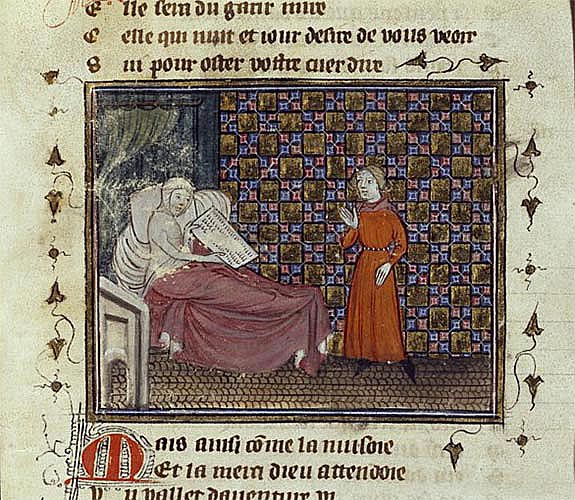 C elle qui nuit et iour desire de vous veoir
S ui pour oster vostre cuer dire
M ais ainsi cõme la nuisoie
Et la merci dieu attendoie
vallet dauenture